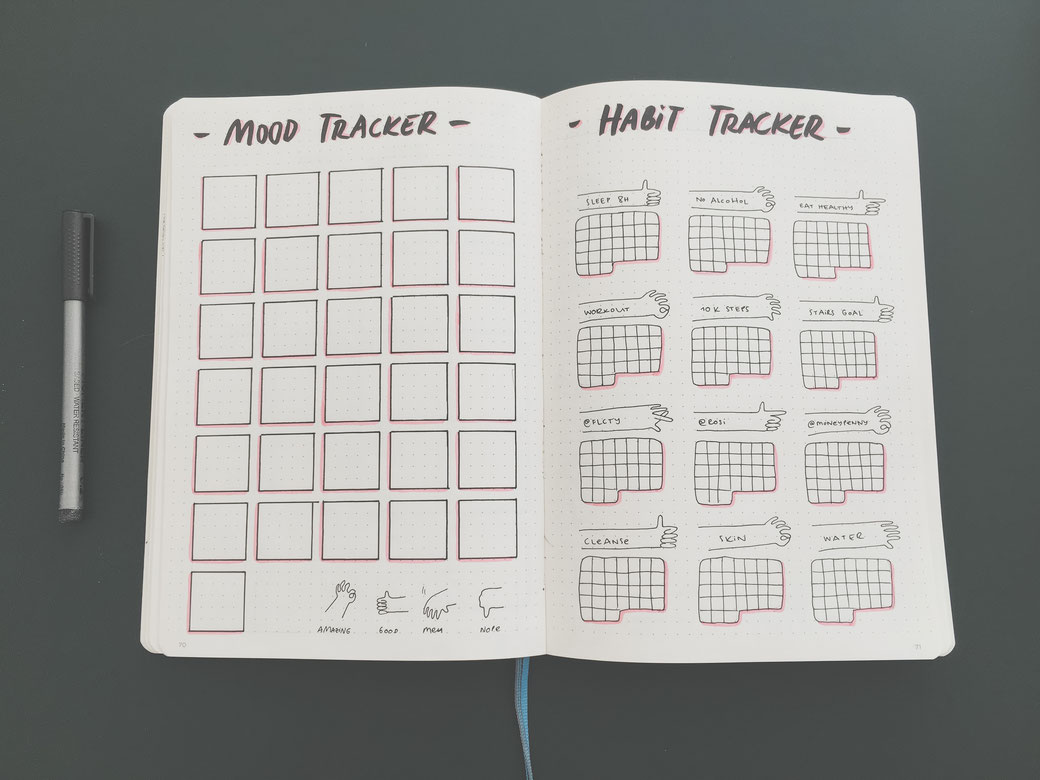 - MOOD TRACKER -
AMAZING. GOOD. MEH. NOPE
70
- HABIT TRACKER -
SLEEP 8H
NO ALCOHOL
EAT HEALTHY
WORKOUT
10K STEPS
STAIRS GOAL
@FLCTY
@ROSI
@MONEYPENNY
CLEANSE
SKIN
WATER
71
WATER RESISTANT